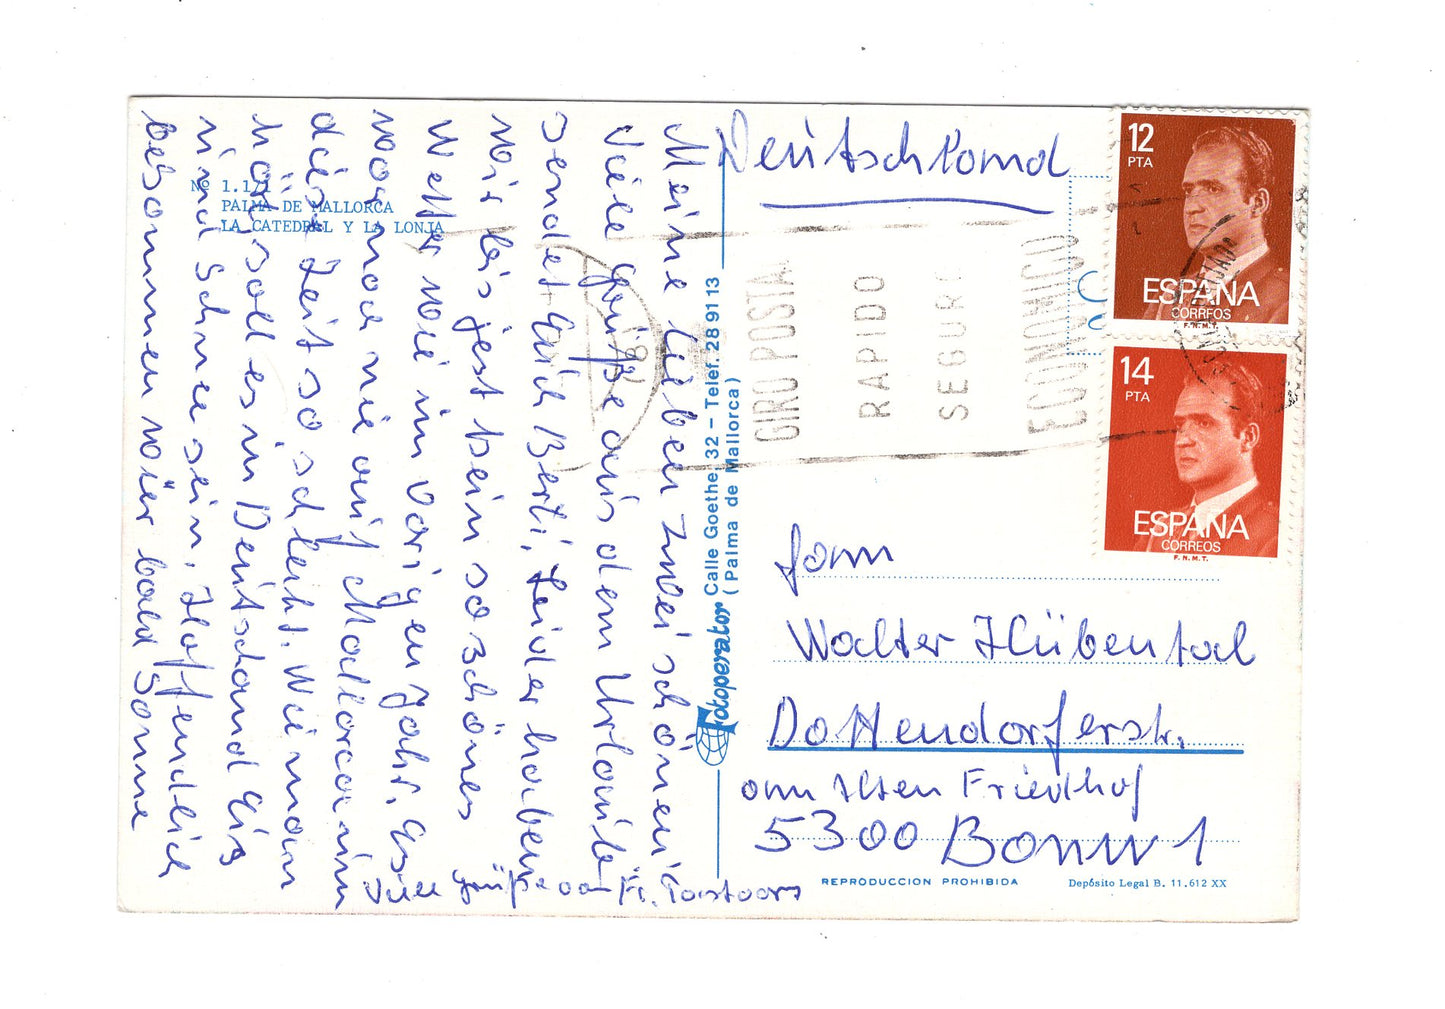 Nº 1.1/1
PALMA DE MALLORCA
LA CATEDRAL Y LA LONJA
Meine lieben zwei schönen
Viele Grüße aus dem Urlaub
sendet Euch Berti, Leider haben
wir bis jest kein so schönes
Wetter wie im vorigen Jahr. Es
war noch nie auf Mallorca um
diese Zeit so schlecht. Wie man
hört soll es in Deutschland Eis
und Schnee sein. Hoffendlich
bekommen wier bald Sonne
Viele Grüße an Fr.
Deutschland
12
PTA
ESPAÑA
CORREOS
F.N.M.T.
14
PTA
ESPAÑA
CORREOS
F.N.M.T.
GIRO POSTAL
RAPIDO
SEGURO
ECONOMICO
Fotoperator Calle Goethe, 32 – Telef. 28 91 13
(Palma de Mallorca)
Fam
Walter Hübental
Dottendorferstr.
am Alten Friedhof
5300 Bonn 1
REPRODUCCION PROHIBIDA
Depósito Legal B. 11.612 XX